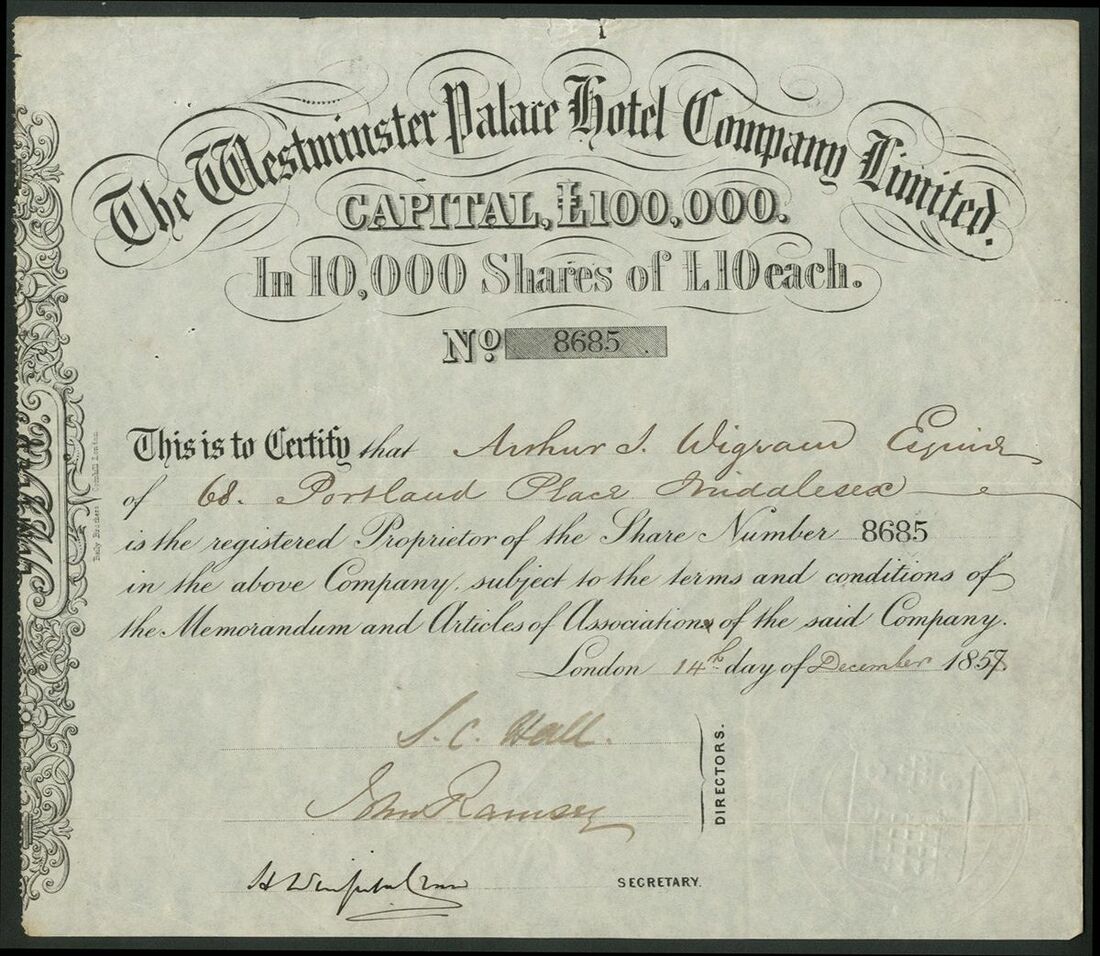 The Westminster Palace Hotel Company Limited.
CAPITAL, £100,000.
In 10,000 Shares of £10 each.
No. 8685
This is to Certify that Arthur J. Wigram Esquire
of 68. Portland Place Middlesex
is the registered Proprietor of the Share Number 8685
in the above Company, subject to the terms and conditions of
the Memorandum and Articles of Association of the said Company.
London 14th day of December 1857.
S. C. Hall.
John Ramsey
DIRECTORS.
SECRETARY.